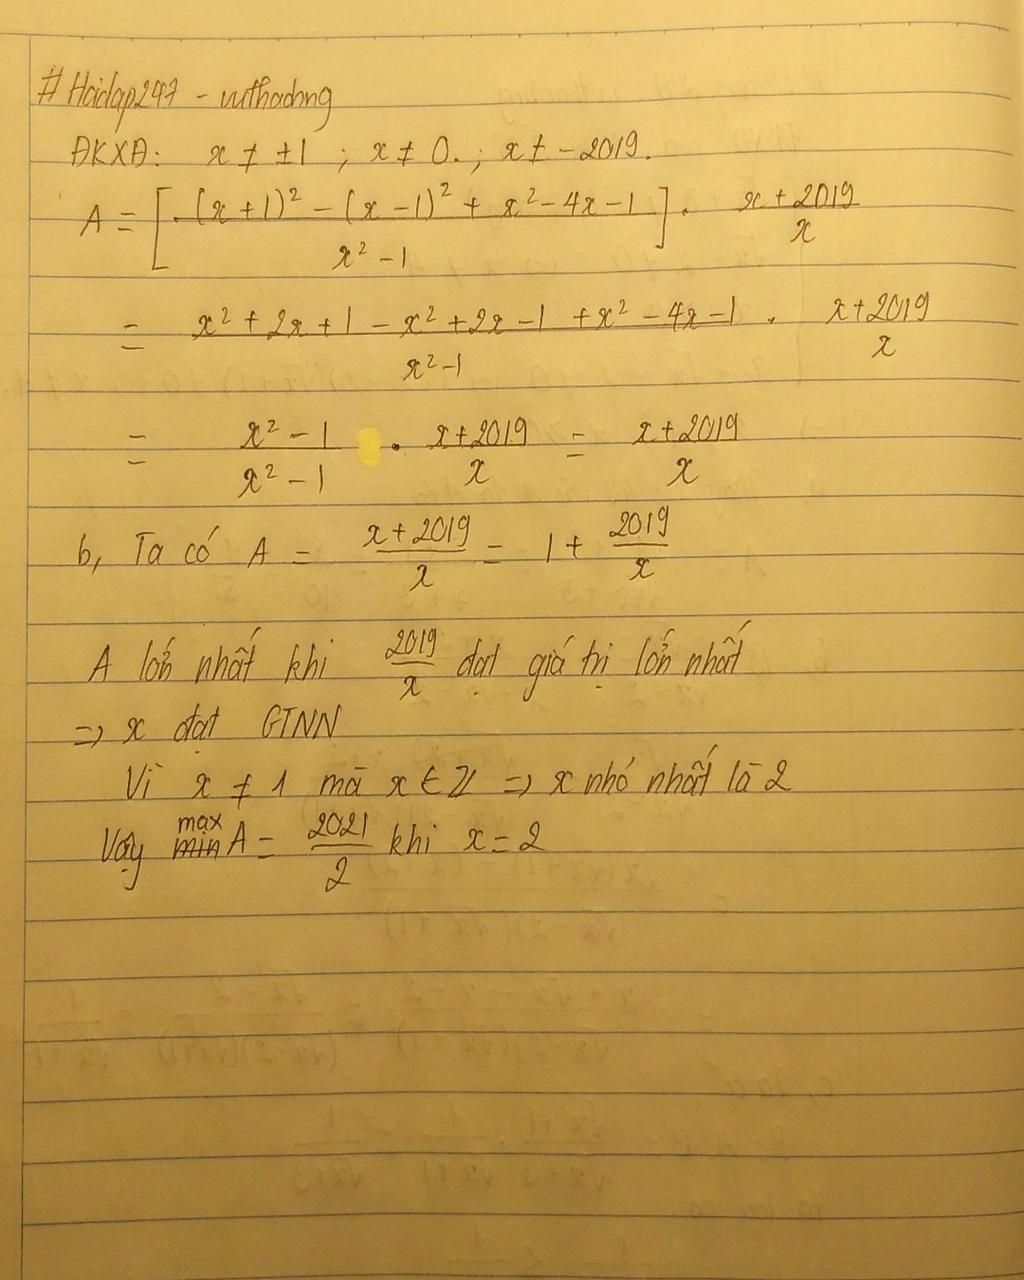 # Hoidap247 - vuthachng
ĐKXĐ: x ≠ ±1 ; x ≠ 0. ; x ≠ -2019.
A = [ ((x+1)² - (x-1)² + x² - 4x - 1) / (x² - 1) ] . (x + 2019) / x
= (x² + 2x + 1 - x² + 2x - 1 + x² - 4x - 1) / (x² - 1) . (x + 2019) / x
= (x² - 1) / (x² - 1) . (x + 2019) / x = (x + 2019) / x
b, Ta có A = (x + 2019) / x = 1 + 2019 / x
A lớn nhất khi 2019 / x đạt giá trị lớn nhất
=> x đạt GTNN
Vì x ≠ 1 mà x ∈ Z => x nhỏ nhất là 2
Vậy max A = 2021 / 2 khi x = 2